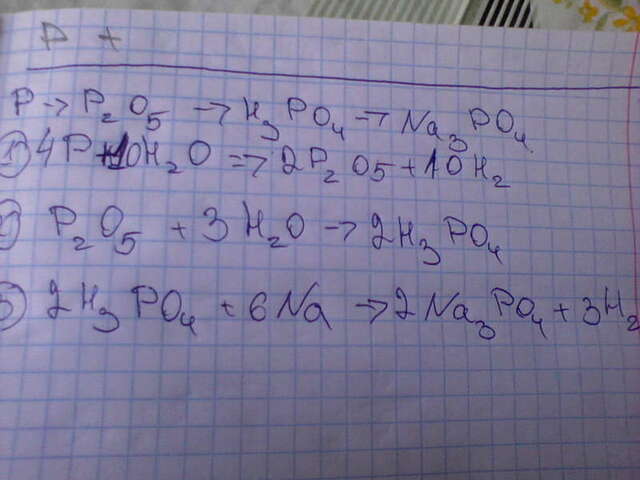 P +
P → P₂O₅ → H₃PO₄ → Na₃PO₄.
1) 4P + 10H₂O => 2P₂O5 + 10H₂
2) P₂O₅ + 3H₂O → 2H₃PO₄
3) 2H₃PO₄ + 6Na → 2Na₃PO₄ + 3H₂